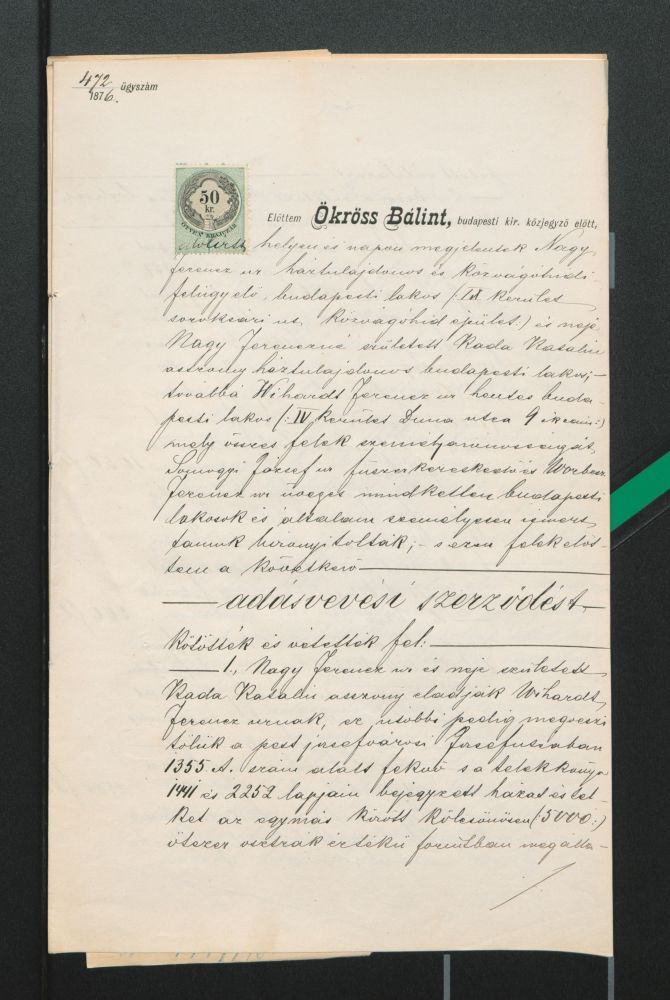 472
1876. ügyszám
50
kr.
ÖTVEN KRAJCZÁR
Előttem Ökröss Bálint, budapesti kir. közjegyző előtt,
alólirt helyen és napon megjelentek Nagy
Ferencz ur háztulajdonos és közvágóhidi
felügyelő, budapesti lakos (: IX kerület
soroksári ut, közvágóhid épület:) és neje
Nagy Ferenczné született Rada Katalin
asszony háztulajdonos budapesti lakos;-
továbbá Wihardt Ferencz ur hentes buda-
pesti lakos (: IV kerület Duna utca 9 :)
mely összes felek személyazonosságát,
Somogyi József ur fűszerkereskedő és
Ferencz ur üveges mindketten budapesti
lakosok és általam személyesen ismert
tanuk bizonyitották; - s ezen felek előt-
tem a következő
adásvevési szerződést
kötötték és vétették fel:
1., Nagy Ferencz ur és neje született
Rada Katalin asszony eladják Wihardt
Ferencz urnak, ez utóbbi pedig megveszi
tőlük a pest józsefvárosi József utcában
1355 A. szám alatt fekvő s a telekkönyv
1441 és 2252 lapjain bejegyzett házat és tel-
ket az egymás között kölcsönösen (: 5000 :)
ötezer osztrák értékű forintban megálla-